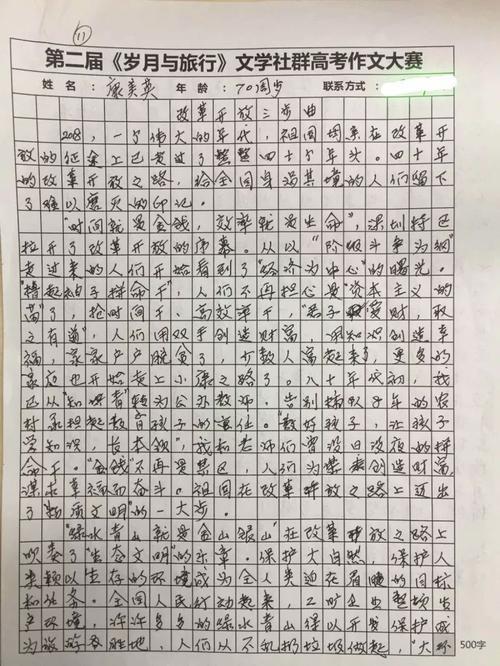 ⑪
第二届《岁月与旅行》文学社群高考作文大赛
姓 名: 康美英 年 龄: 70周岁 联系方式:
改革开放三步曲
2018,一个伟大的年代,祖国母亲在改革开
放的征途上已走过了整整四十个年头。四十年
的改革开放之路,给全国身临其境的人们留下
了难以磨灭的印记。
"时间就是金钱,效率就是生命",深圳特区
拉开了改革开放的序幕。从以"阶级斗争为纲"
走过来的人们开始看到了"经济为中心"的曙光。
"撸起袖子拼命干",人们不再担心是"资本主义的
苗"了,抢时间干、高效率干,"君子爱财,取
之有道",人们用双手创造财富 用知识创造幸
福,家家户户脱贫了,少数人富起来,更多的
家庭也开始走上小康之路了。八十年代初,我
已从"知识青年"转为公办教师,告别 年的农
村承担起教育孩子的责任。"教好孩子,让孩子
学知识,长本领",我和老师们曾没日没夜的拼
命干。"金钱"不再是罪恶,人们为 创造财富
谋求幸福而奋斗。祖国在改革开放之路上迈出
了"物质文明"的一大步。
"绿水青山就是金山银山"在改革开放之路上
吹奏了"生态文明"的乐章。保护大自然,保护人
类赖以生存的环境成为全人类迫在眉睫的目标
和任务。全国人民行动起来,工矿企业整顿生
产环境,许许多多的绿水青山得以开发保护成
为旅游名胜地,人们从不乱扔垃圾做起,"大环
500字